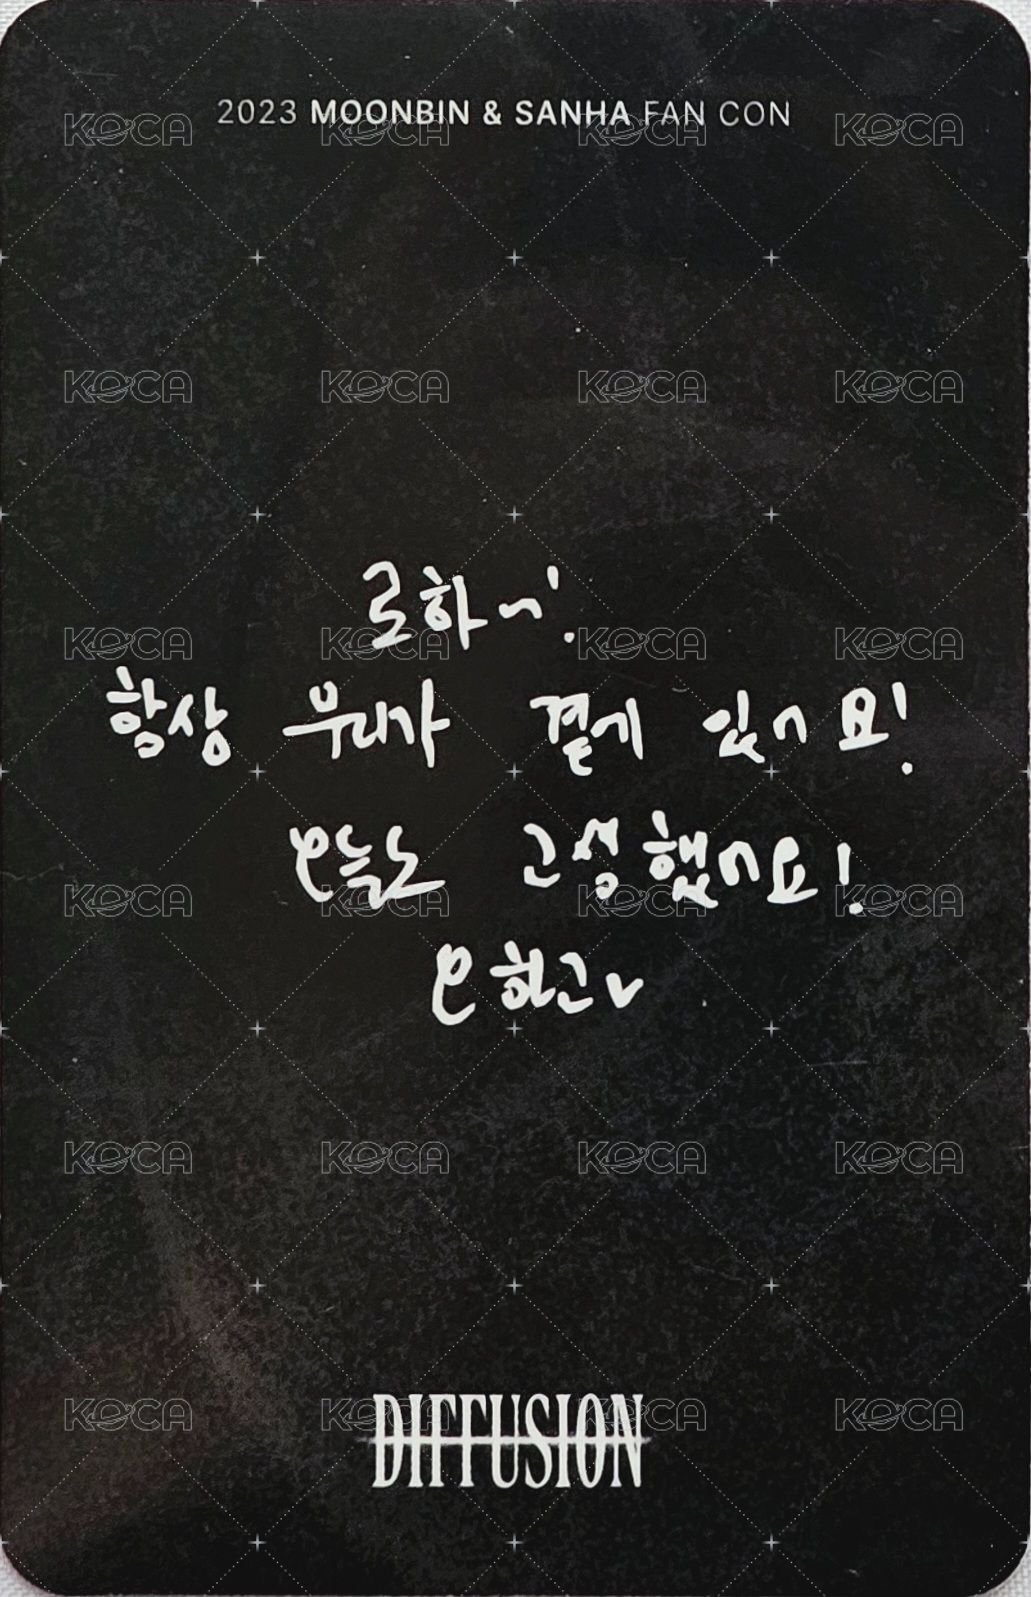 2023 MOONBIN & SANHA FAN CON
KOCA KOCA KOCA KOCA
KOCA KOCA KOCA KOCA
로하~!
KOCA KOCA KOCA KOCA
항상 우리가 곁에 있어요!
오늘도 고생했어요!
KOCA KOCA KOCA KOCA
오하고v
KOCA KOCA KOCA KOCA
DIFFUSION
KOCA KOCA KOCA KOCA